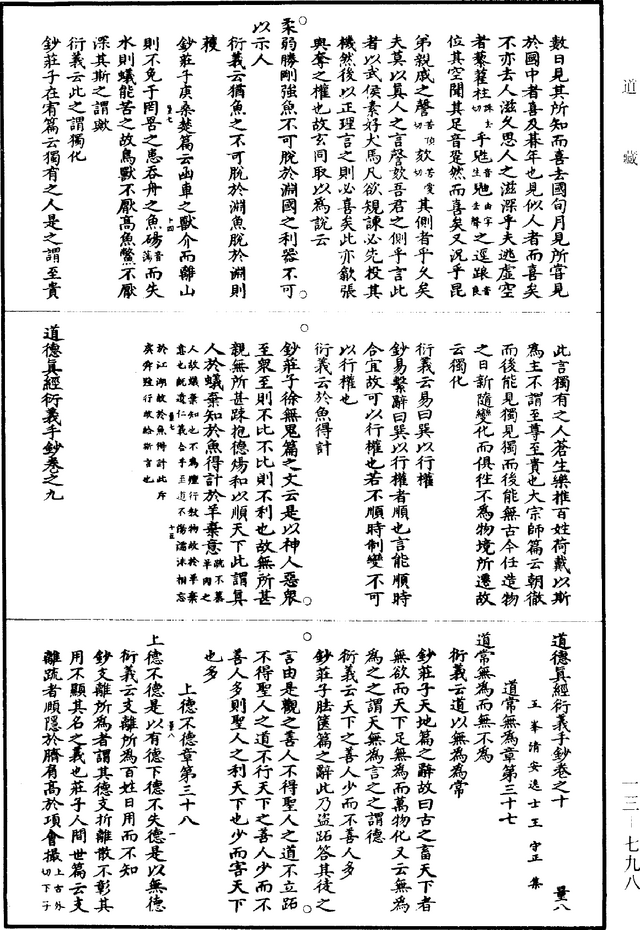 道藏
數日見其所知而喜去國旬月見所嘗見
於國中者喜及朞年也見似人者而喜矣
不亦去人滋久思人之滋深乎夫逃虛空
者藜藋柱殊主切乎鼪音生鼬由字去聲之逕踉音良
位其空聞其足音跫然而喜矣又況乎昆
弟親戚之謦苦頂切欬苦愛切其側者乎久矣
夫莫以真人之言謦欬吾君之側乎言此
者以武侯素好犬馬凡欲規諫必先投其
機然後以正理言之則必喜矣此亦歙張
與奪之權也故玄同取以為說云
柔弱勝剛強魚不可脫於淵國之利器不可
以示人
衍義云猶魚之不可脫於淵魚脫於淵則
獲
鈔莊子庚桑楚篇云函車之獸介而離山
量七 十四
則不免于罔罟之患吞舟之魚碭音蕩而失
水則蟻能苦之故鳥獸不厭高魚鱉不厭
深其斯之謂歟
衍義云此之謂獨化
鈔莊子在宥篇云獨有之人是之謂至貴
此言獨有之人蒼生樂推百姓荷戴以斯
為主不謂至尊至貴也大宗師篇云朝徹
而後能見獨見獨而後能無古今任造物
之日新隨變化而俱往不為物境所遷故
云獨化
衍義云易曰巽以行權
鈔易繫辭曰巽以行權者順也言能順時
合宜故可以行權也若不順時制變不可
以行權也
衍義云於魚得計
鈔莊子徐無鬼篇之文云是以神人惡眾
至眾至則不比不比則不利也故無所甚
親無所甚踈抱德煬和以順天下此謂真
人於蟻棄知於魚得計於羊棄意 不慕羊肉之
人故蟻棄知也不為羶行教物故於羊棄
量七 十五
意也既遺仁義合乎至道不傷濡沫相忘
於江湖故於魚得計此斥
虞舜羶行故於斯言也
道德眞經衍義手鈔卷之九
道德眞經衍義手鈔卷之十 量八
玉峯清安逸士王守正集
道常無為章第三十七
道常無為而無不為
衍義云道以無為為常
鈔莊子天地篇之辭故曰古之畜天下者
無欲而天下足無為而萬物化又云無為
為之之謂天無為言之之謂德
衍義云天下之善人少而不善人多
鈔莊子胠篋篇之辭此乃盜跖答其徒之
言由是觀之善人不得聖人之道不立跖
不得聖人之道不行天下之善人少而不
善人多則聖人之利天下也少而害天下
也多
上德不德章第三十八
上德不德是以有德下德不失德是以無德
量八 一
衍義云支離所為百姓日用而不知
鈔支離所為者謂其德支折離散不彰其
用不顯其名之義也莊子人間世篇云支
離疏者頤隱於臍肩高於項會撮上古外切下子
一三—七九八